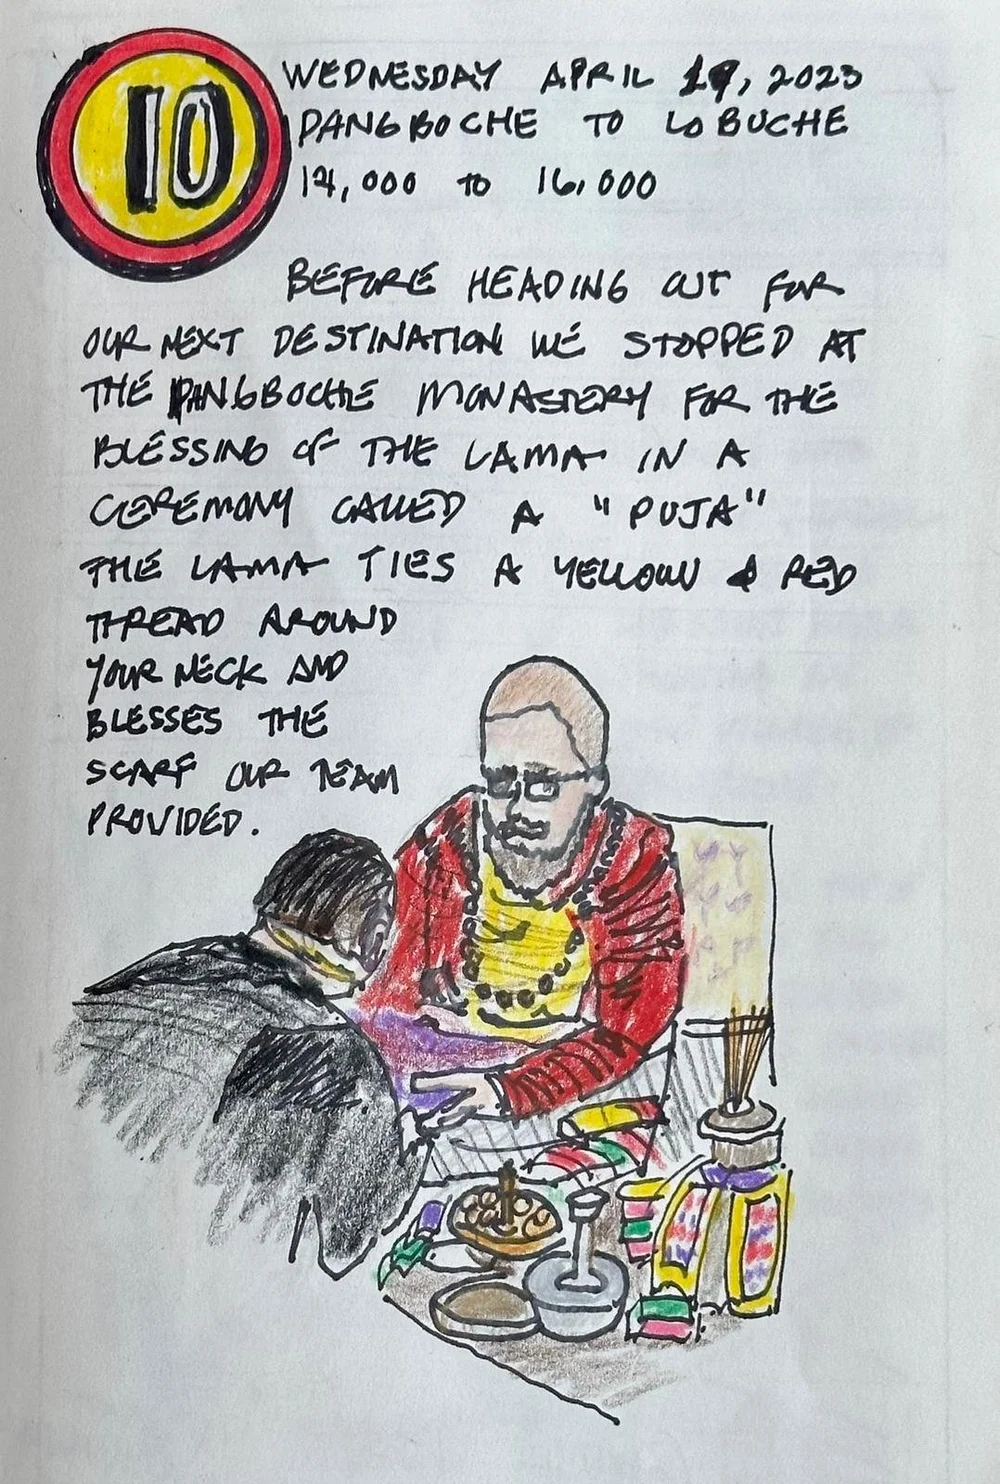 10
WEDNESDAY APRIL 19, 2023
PANGBOCHE TO LOBUCHE
14,000 TO 16,000
BEFORE HEADING OUT FOR
OUR NEXT DESTINATION WE STOPPED AT
THE PANGBOCHE MONASTERY FOR THE
BLESSING OF THE LAMA IN A
CEREMONY CALLED A "PUJA"
THE LAMA TIES A YELLOW & RED
THREAD AROUND
YOUR NECK AND
BLESSES THE
SCARF OUR TEAM
PROVIDED.